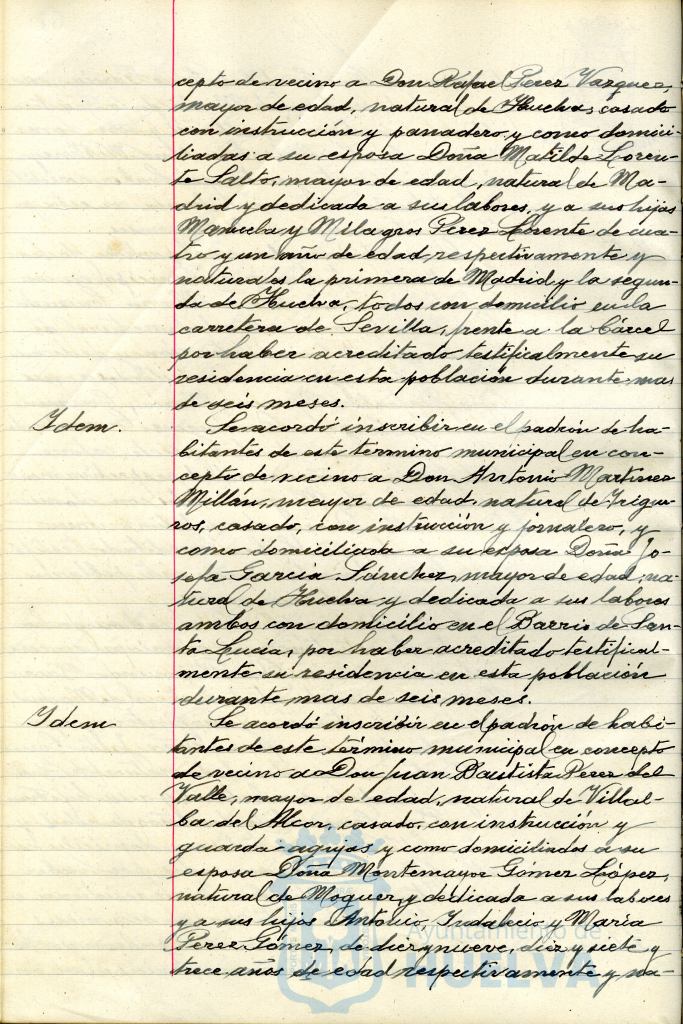 cepto de vecino a Don Rafael Perez Vazquez,
mayor de edad, natural de Huelva, casado
con instrucción y panadero, y como domici-
liadas a su esposa Doña Matilde Loren-
te Salto, mayor de edad, natural de Ma-
drid y dedicada a sus labores, y a sus hijas
Manuela y Milagros Perez Lorente de cua-
tro y un año de edad respectivamente y
naturales la primera de Madrid y la segun-
da de Huelva, todos con domicilio en la
carretera de Sevilla, frente a la Cárcel
por haber acreditado testificalmente su
residencia en esta población durante mas
de seis meses.
Idem.
Se acordó inscribir en el padrón de ha-
bitantes de este termino municipal en con-
cepto de vecino a Don Antonio Martinez
Millán, mayor de edad, natural de Trigue-
ros, casado, con instrucción y jornalero, y
como domiciliada a su esposa Doña Jo-
sefa García Sánchez, mayor de edad, na-
tural de Huelva y dedicada a sus labores
ambos con domicilio en el Barrio de San-
ta Lucía, por haber acreditado testifical-
mente su residencia en esta población
durante mas de seis meses.
Idem
Se acordó inscribir en el padrón de habi-
tantes de este término municipal en concepto
de vecino a Don Juan Bautista Perez del
Valle, mayor de edad, natural de Villal-
ba del Alcor, casado, con instrucción y
guarda-agujas y como domiciliados a su
esposa Doña Montemayor Gómez López,
natural de Moguer, y dedicada a sus labores
y a sus hijos Antonio, Indalecio y María
Perez Gómez, de diez y nueve, diez y siete y
trece años de edad respectivamente y na-
Ayuntamiento de
HUELVA